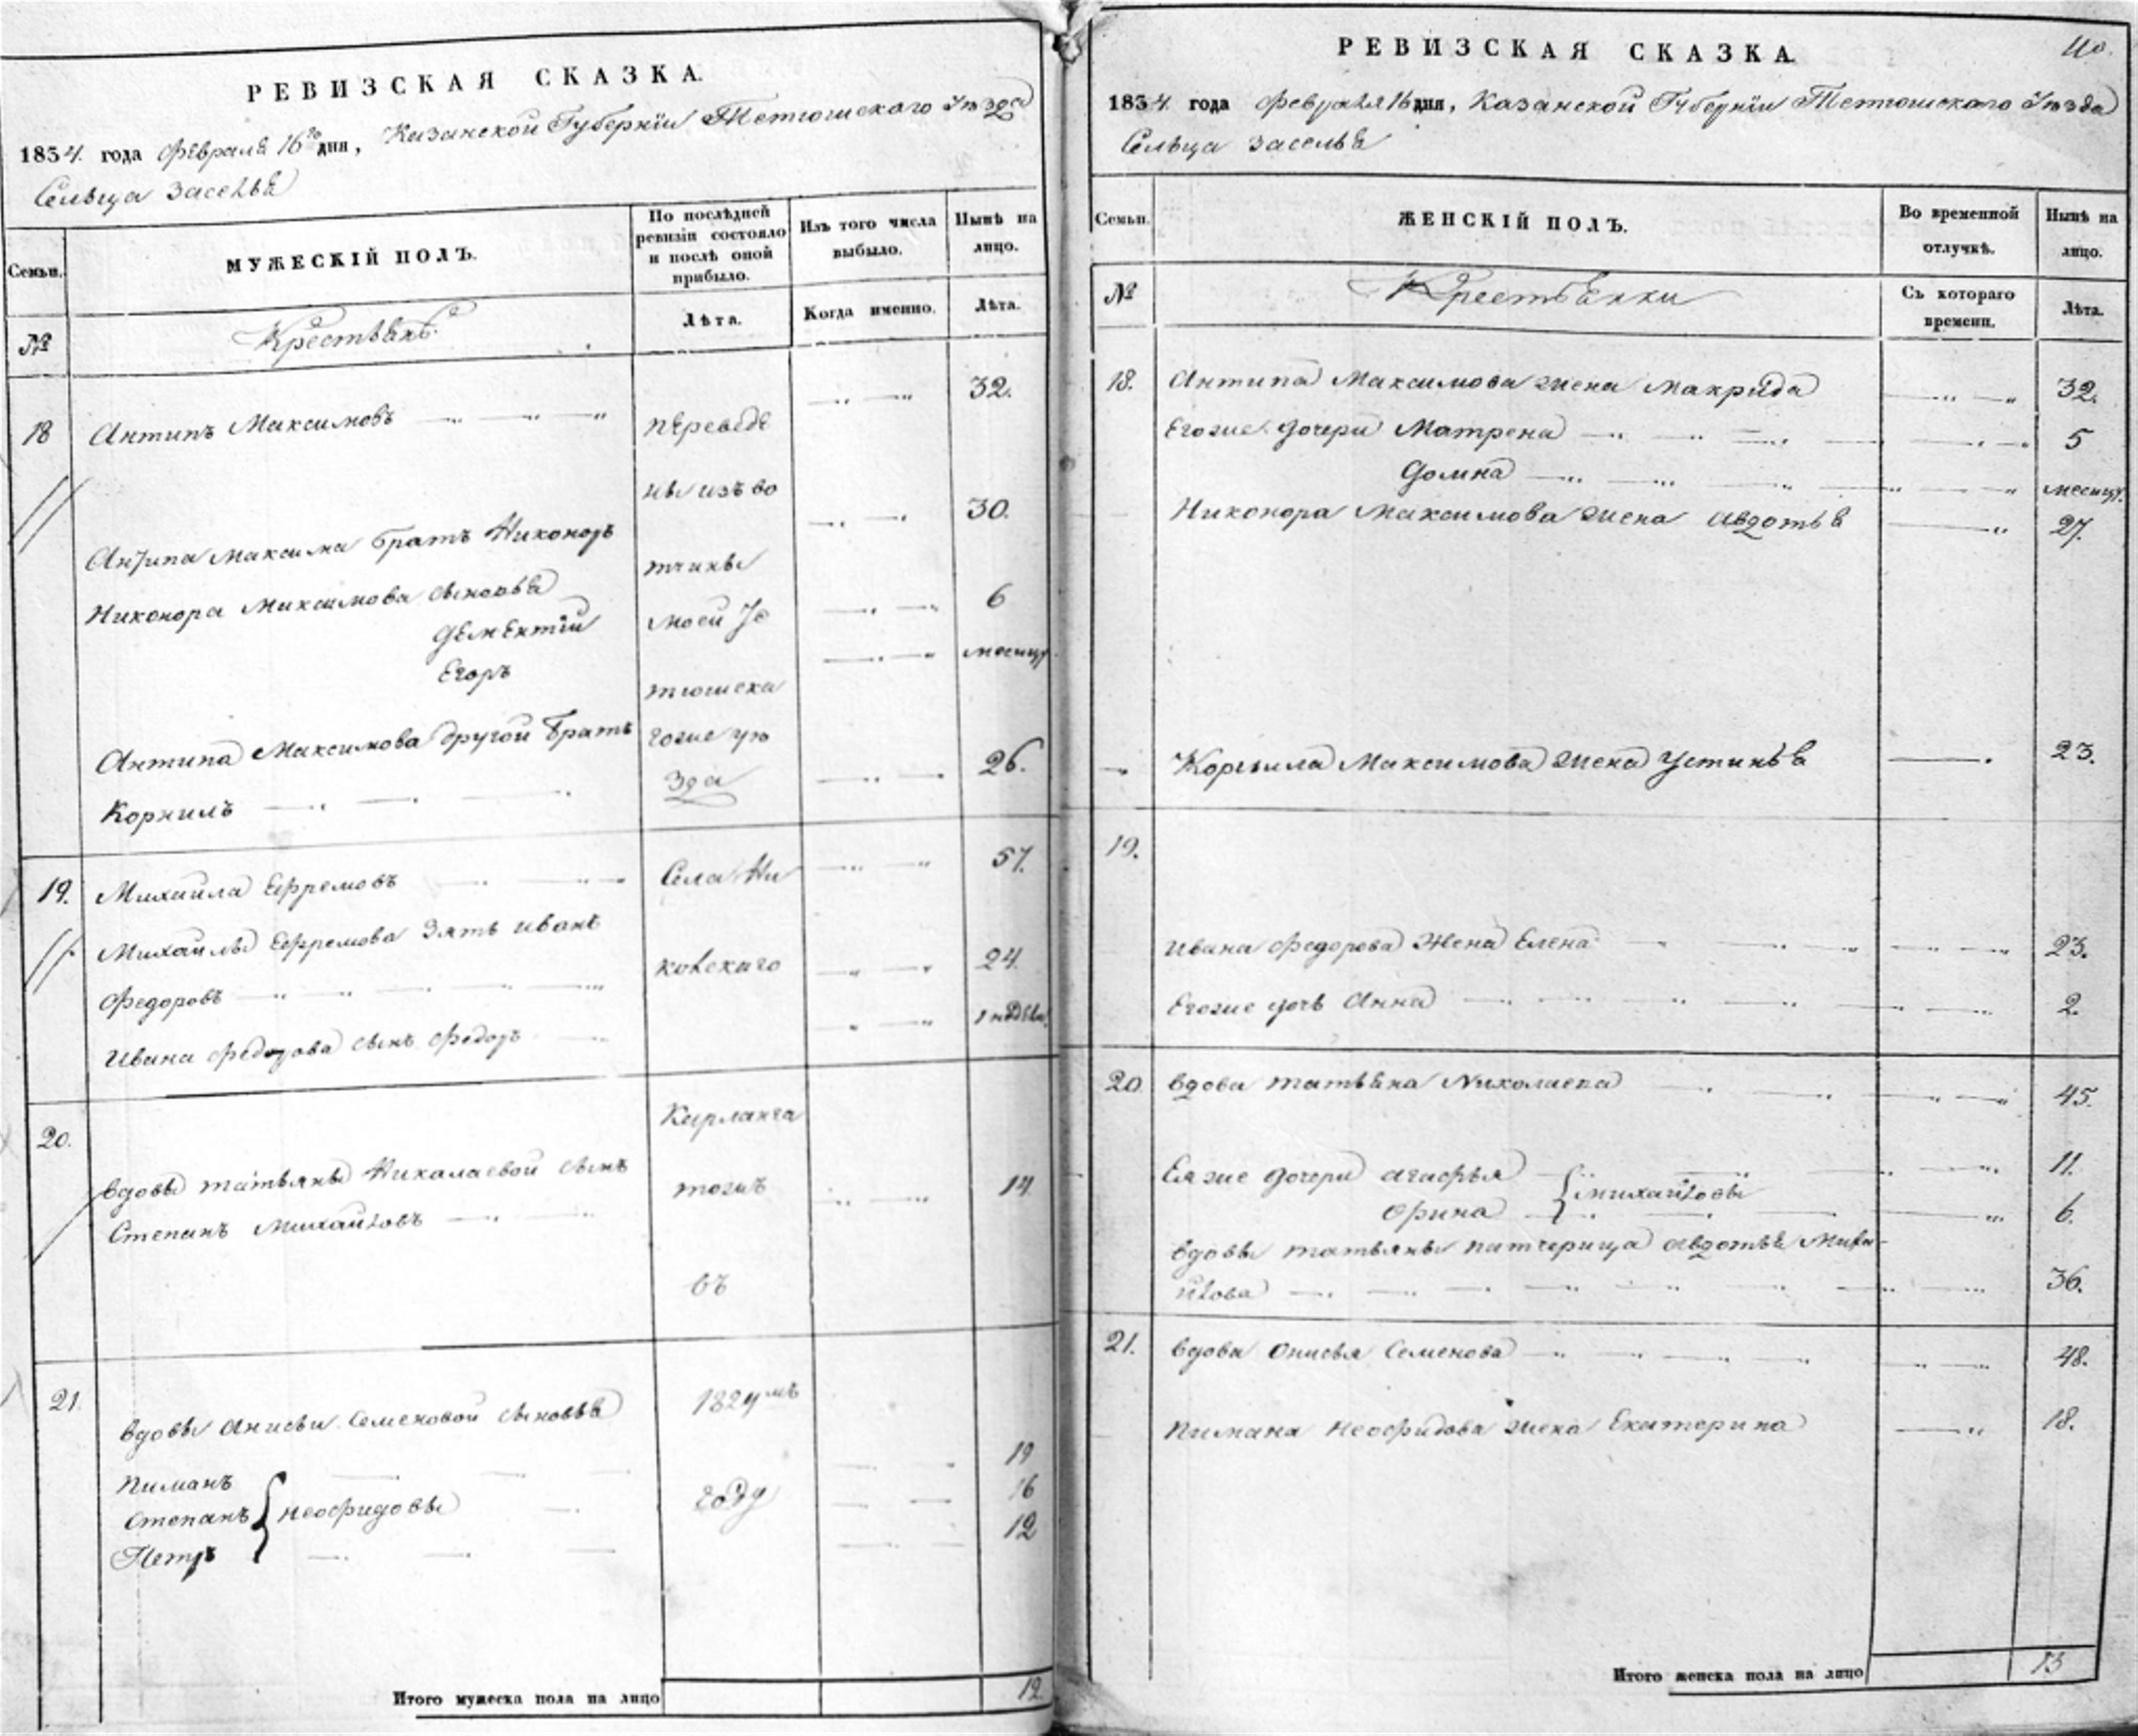 РЕВИЗСКАЯ СКАЗКА.
1834. года февраля 16го дня, Казанской Губернїи Тетюшскаго Уѣзда
Сельца Заселья
Семьи.
МУЖЕСКІЙ ПОЛЪ.
По послѣдней ревизіи состояло и послѣ оной прибыло.
Изъ того числа выбыло.
Нынѣ на лицо.
№
Крестьяне
Лѣта.
Когда именно.
Лѣта.
18 Антипъ Максимовъ 32.
переведе
ны изъ во
Антипа Максима братъ Никоноръ 30.
тчины
Никонора Максимова сыновья
Дементїй моей 6
Егоръ месяцъ
тюшска
Антипа Максимова другой братъ гоже уѣ
Корнилъ зда 26.
19. Михаила Ефремовъ Села Ни 57.
Михаилы Ефремова зять Иванъ
Федоровъ ковскаго 24.
Ивана Федорова сынъ Федоръ
20. Кирланга
вдовы татьяны Николаевой сынъ
Степанъ Михайловъ тожъ 14.
въ
21. вдовы Анисьи Семеновой сыновья
Пиманъ 19
Степанъ неофидовы году 16
Петръ 12
Итого мужеска пола на лицо 12.
РЕВИЗСКАЯ СКАЗКА.
1834. года февраля 16 дня, Казанской Губернїи Тетюшскаго Уѣзда
Сельца Заселья
Семьи.
ЖЕНСКІЙ ПОЛЪ.
Во временной отлучкѣ.
Нынѣ на лицо.
№
Крестьянки
Съ котораго времени.
Лѣта.
18. Антипа Максимова жена Макрида 32.
Егоже дочери Матрена 5
Домна месяцъ
Никонора Максимова жена Авдотья 27.
Корнила Максимова жена Устинья 23.
19.
Ивана Федорова жена Елена 23.
Егоже дочь Анна 2.
20. вдова татьяна Николаева 45.
Ея же дочери Агафья 11.
Михайловы
Орина 6.
вдовы татьяны патчерица Авдотья Миха
йлова 36.
21. вдова Онисья Семенова 48.
Пимана неофидова жена Екатерина 18.
Итого женска пола на лицо 13